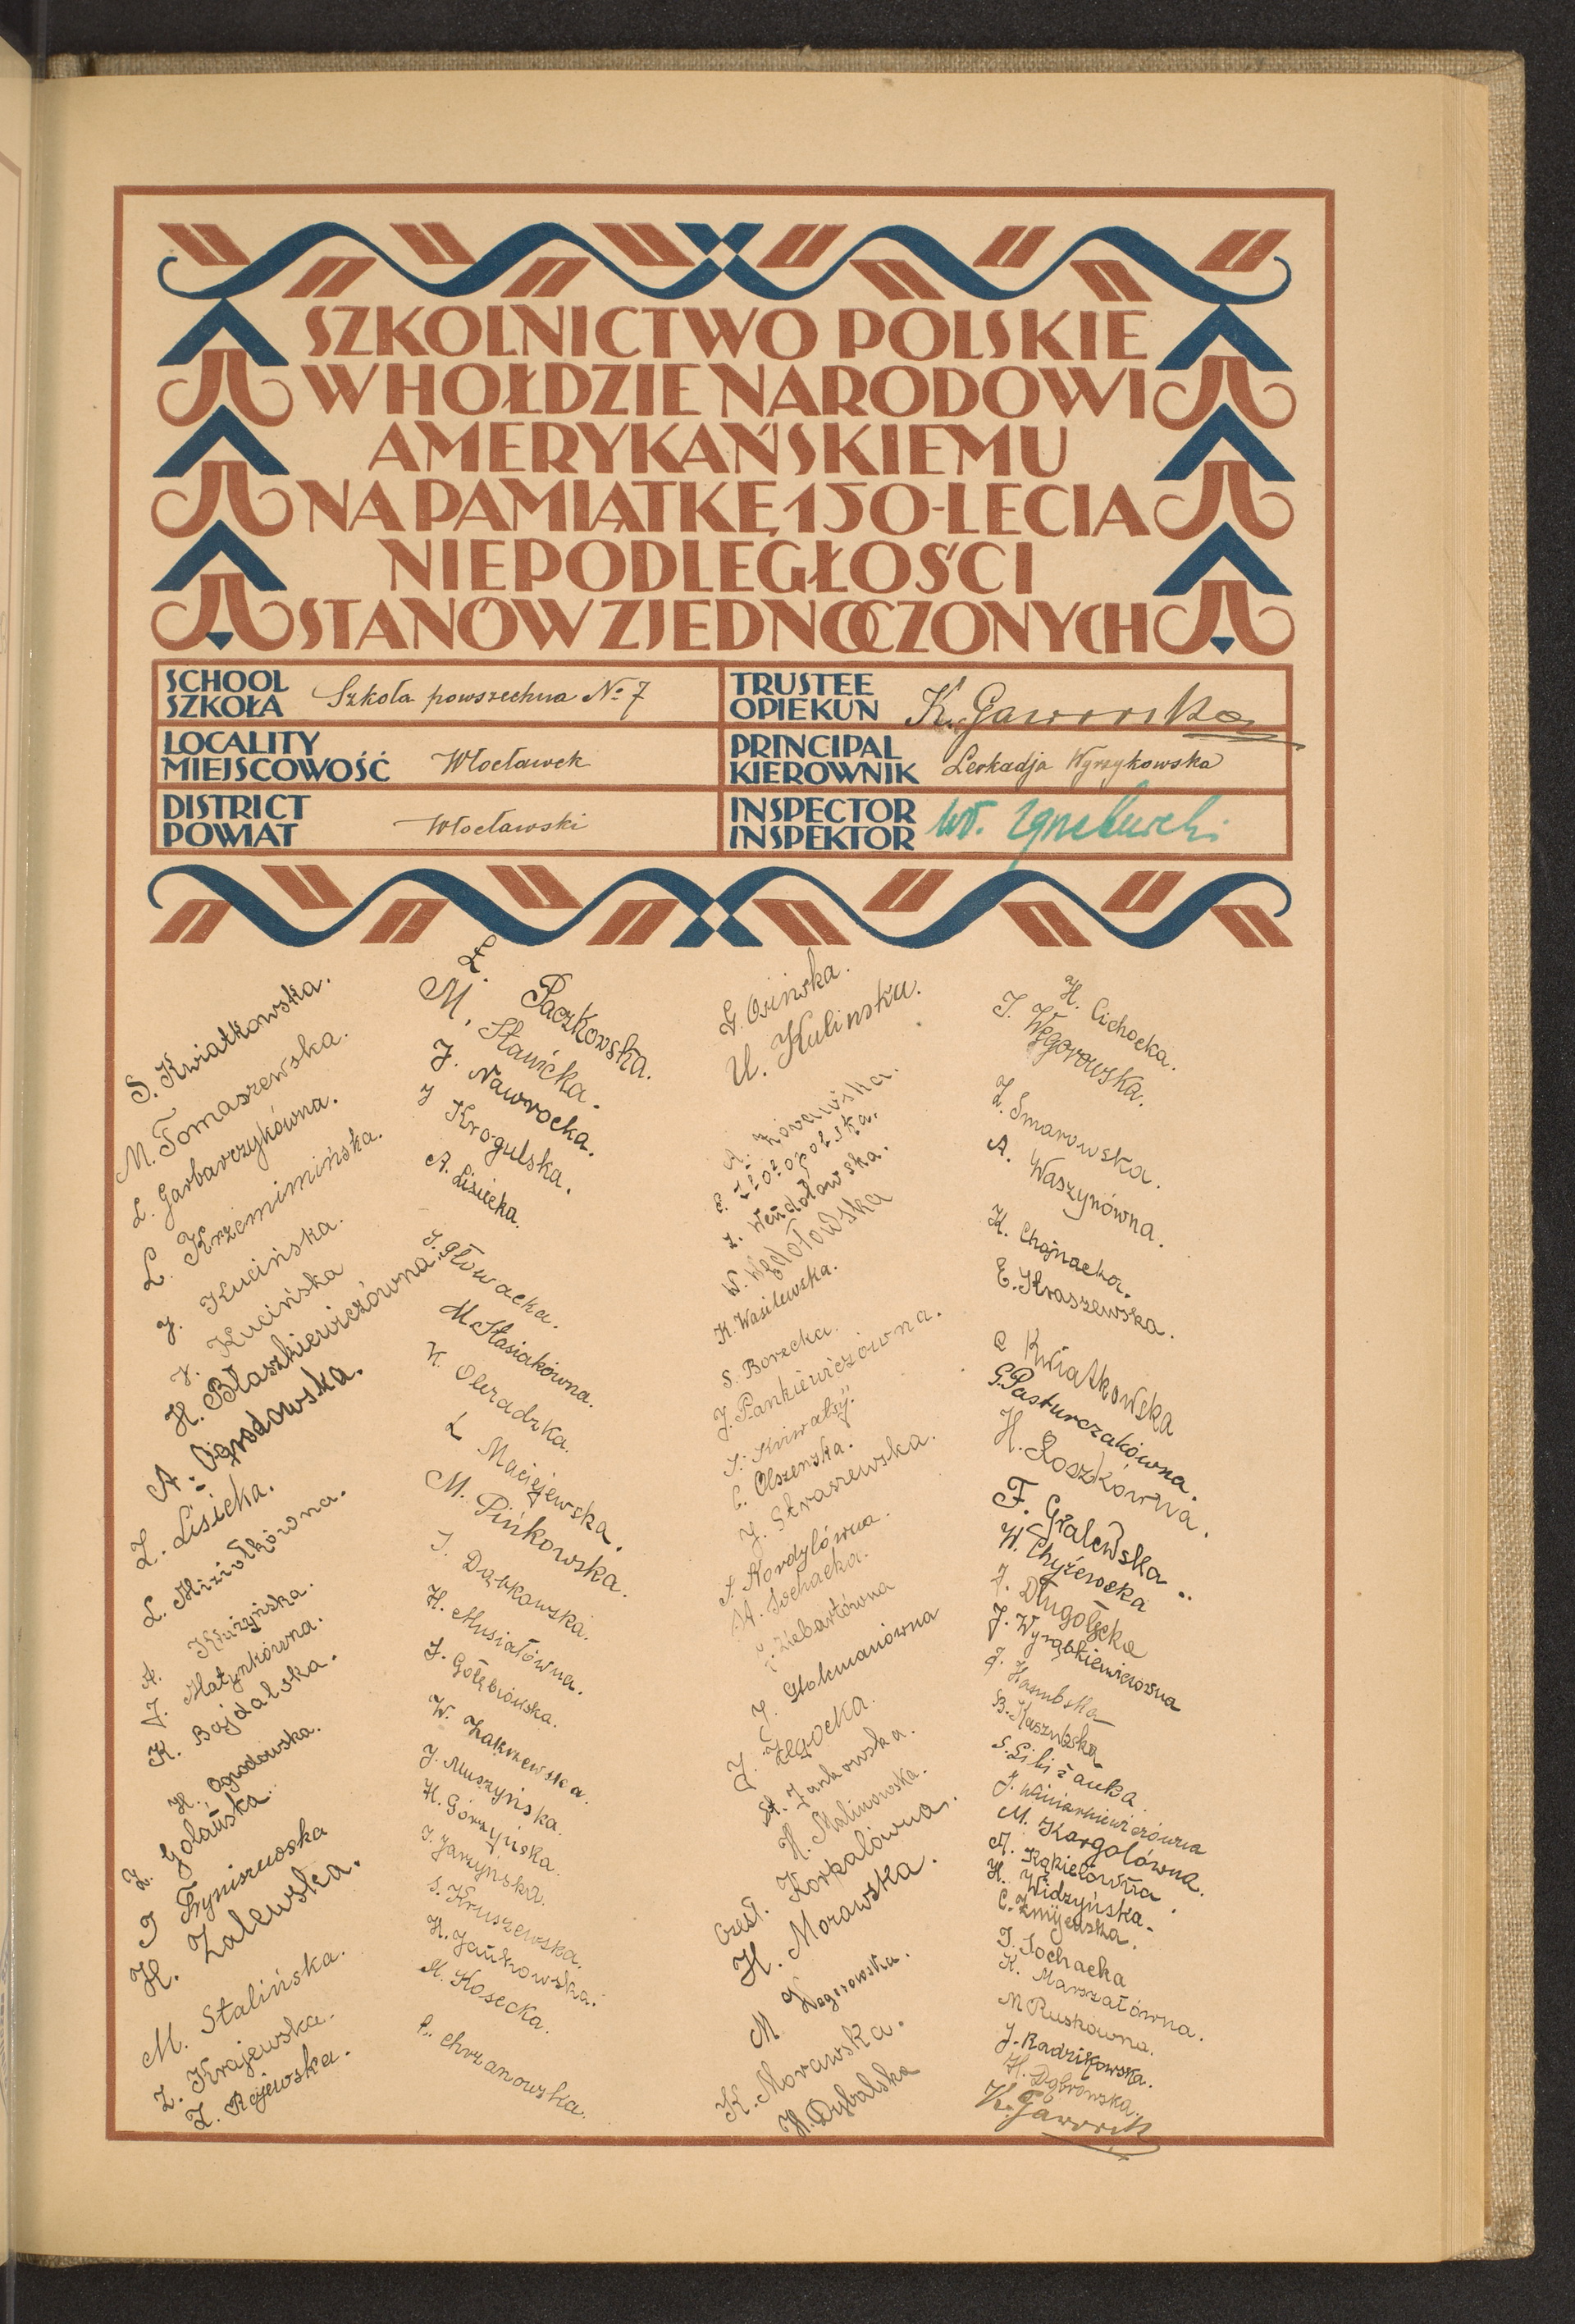 SZKOLNICTWO POLSKIE
W HOŁDZIE NARODOWI
AMERYKAŃSKIEMU
NA PAMIĄTKĘ 150-LECIA
NIEPODLEGŁOŚCI
STANÓW ZJEDNOCZONYCH
SCHOOL
SZKOŁA
Szkoła powszechna № 7
TRUSTEE
OPIEKUN
K. Gaworska
LOCALITY
MIEJSCOWOŚĆ
Włocławek
PRINCIPAL
KIEROWNIK
Leokadja Wyrzykowska
DISTRICT
POWIAT
Włocławski
INSPECTOR
INSPEKTOR
Wł.
S. Kwiatkowska.
M. Tomaszewska.
L. Garbarczykówna.
L. Krzemimińska.
J. Kucińska.
J. Kucińska
H. Błaszkiewiczówna.
A. Ogrodowska.
Z. Lisicka.
L. Miziołkówna.
A. Krużyńska.
J. Matynkówna.
K. Bajdalska.
H. Ogrodowska.
Z. Golańska
Tyniszwoska
H. Zalewska.
M. Stalińska.
Z. Krajewska.
Z. Rajewska.
Paczkowska.
M. Stawicka.
J. Nawrocka.
J Krogulska.
A. Lisiecka.
S. Głowacka.
M. Stasiakówna.
K. Oleradzka.
L Maciejewska.
M. Pińkowska.
J. Dąbkowska.
H. Musiałówna.
J. Gołębiowska.
W. Zakrzewska.
J. Muszyńska.
H. Górzyńska.
J. Jarzyńska.
S. Kruszewska.
H. Jankowska.
M. Kosecka.
C. Chrzanowska.
G. Osińska.
U. Kulinska.
E. Złozopolska.
Z. Wendołowska.
W. Wędołowska
K. Wasilewska.
S. Borecka.
J. Pankiewiczówna.
C. Olszewska.
J. Straszewska.
J. Kordylówna.
W. Sochacka.
Ziebartówna
J. Stokmanówna
J. Zegocka.
St. Jankowska.
H. Malinowska.
Czest. Korpalówna.
H. Morawska.
M. Węgorowska.
K. Morawska.
H. Dybalska
H. Cichocka.
J. Węgorowska.
Z. Smarowska.
A. Waszynówna.
H. Chojnacka.
E. Straszewska.
C Kwiatkowska
G. Pasturczakówna.
H. Roszkówna.
F. Gralewska..
W. Chyżewska
J. Długołęcka
J. Wyrąbkiewiczówna
J. Zambska
B. Kaszubska
S. Libiżanka.
J. Winiarkiewiczówna
M. Kargolówna.
A. Kąkielówna.
H. Widzyńska.
C. Żmijewska.
J. Sochacka
K. Marszałówna.
M Ruskówna.
J. Radzikowska.
H. Dąbrowska.